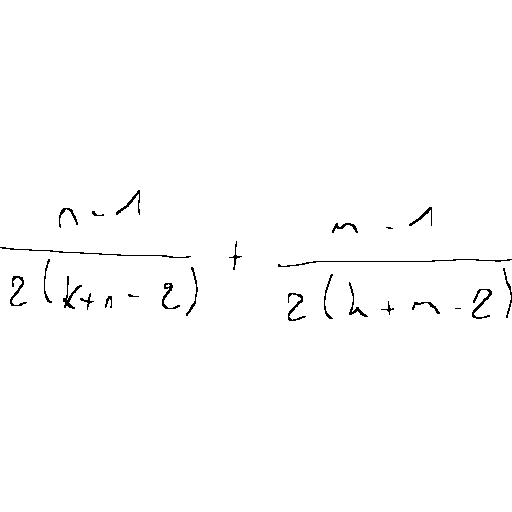 \frac{n-1}{2(k+n-2)} + \frac{m-1}{2(k+m-2)}